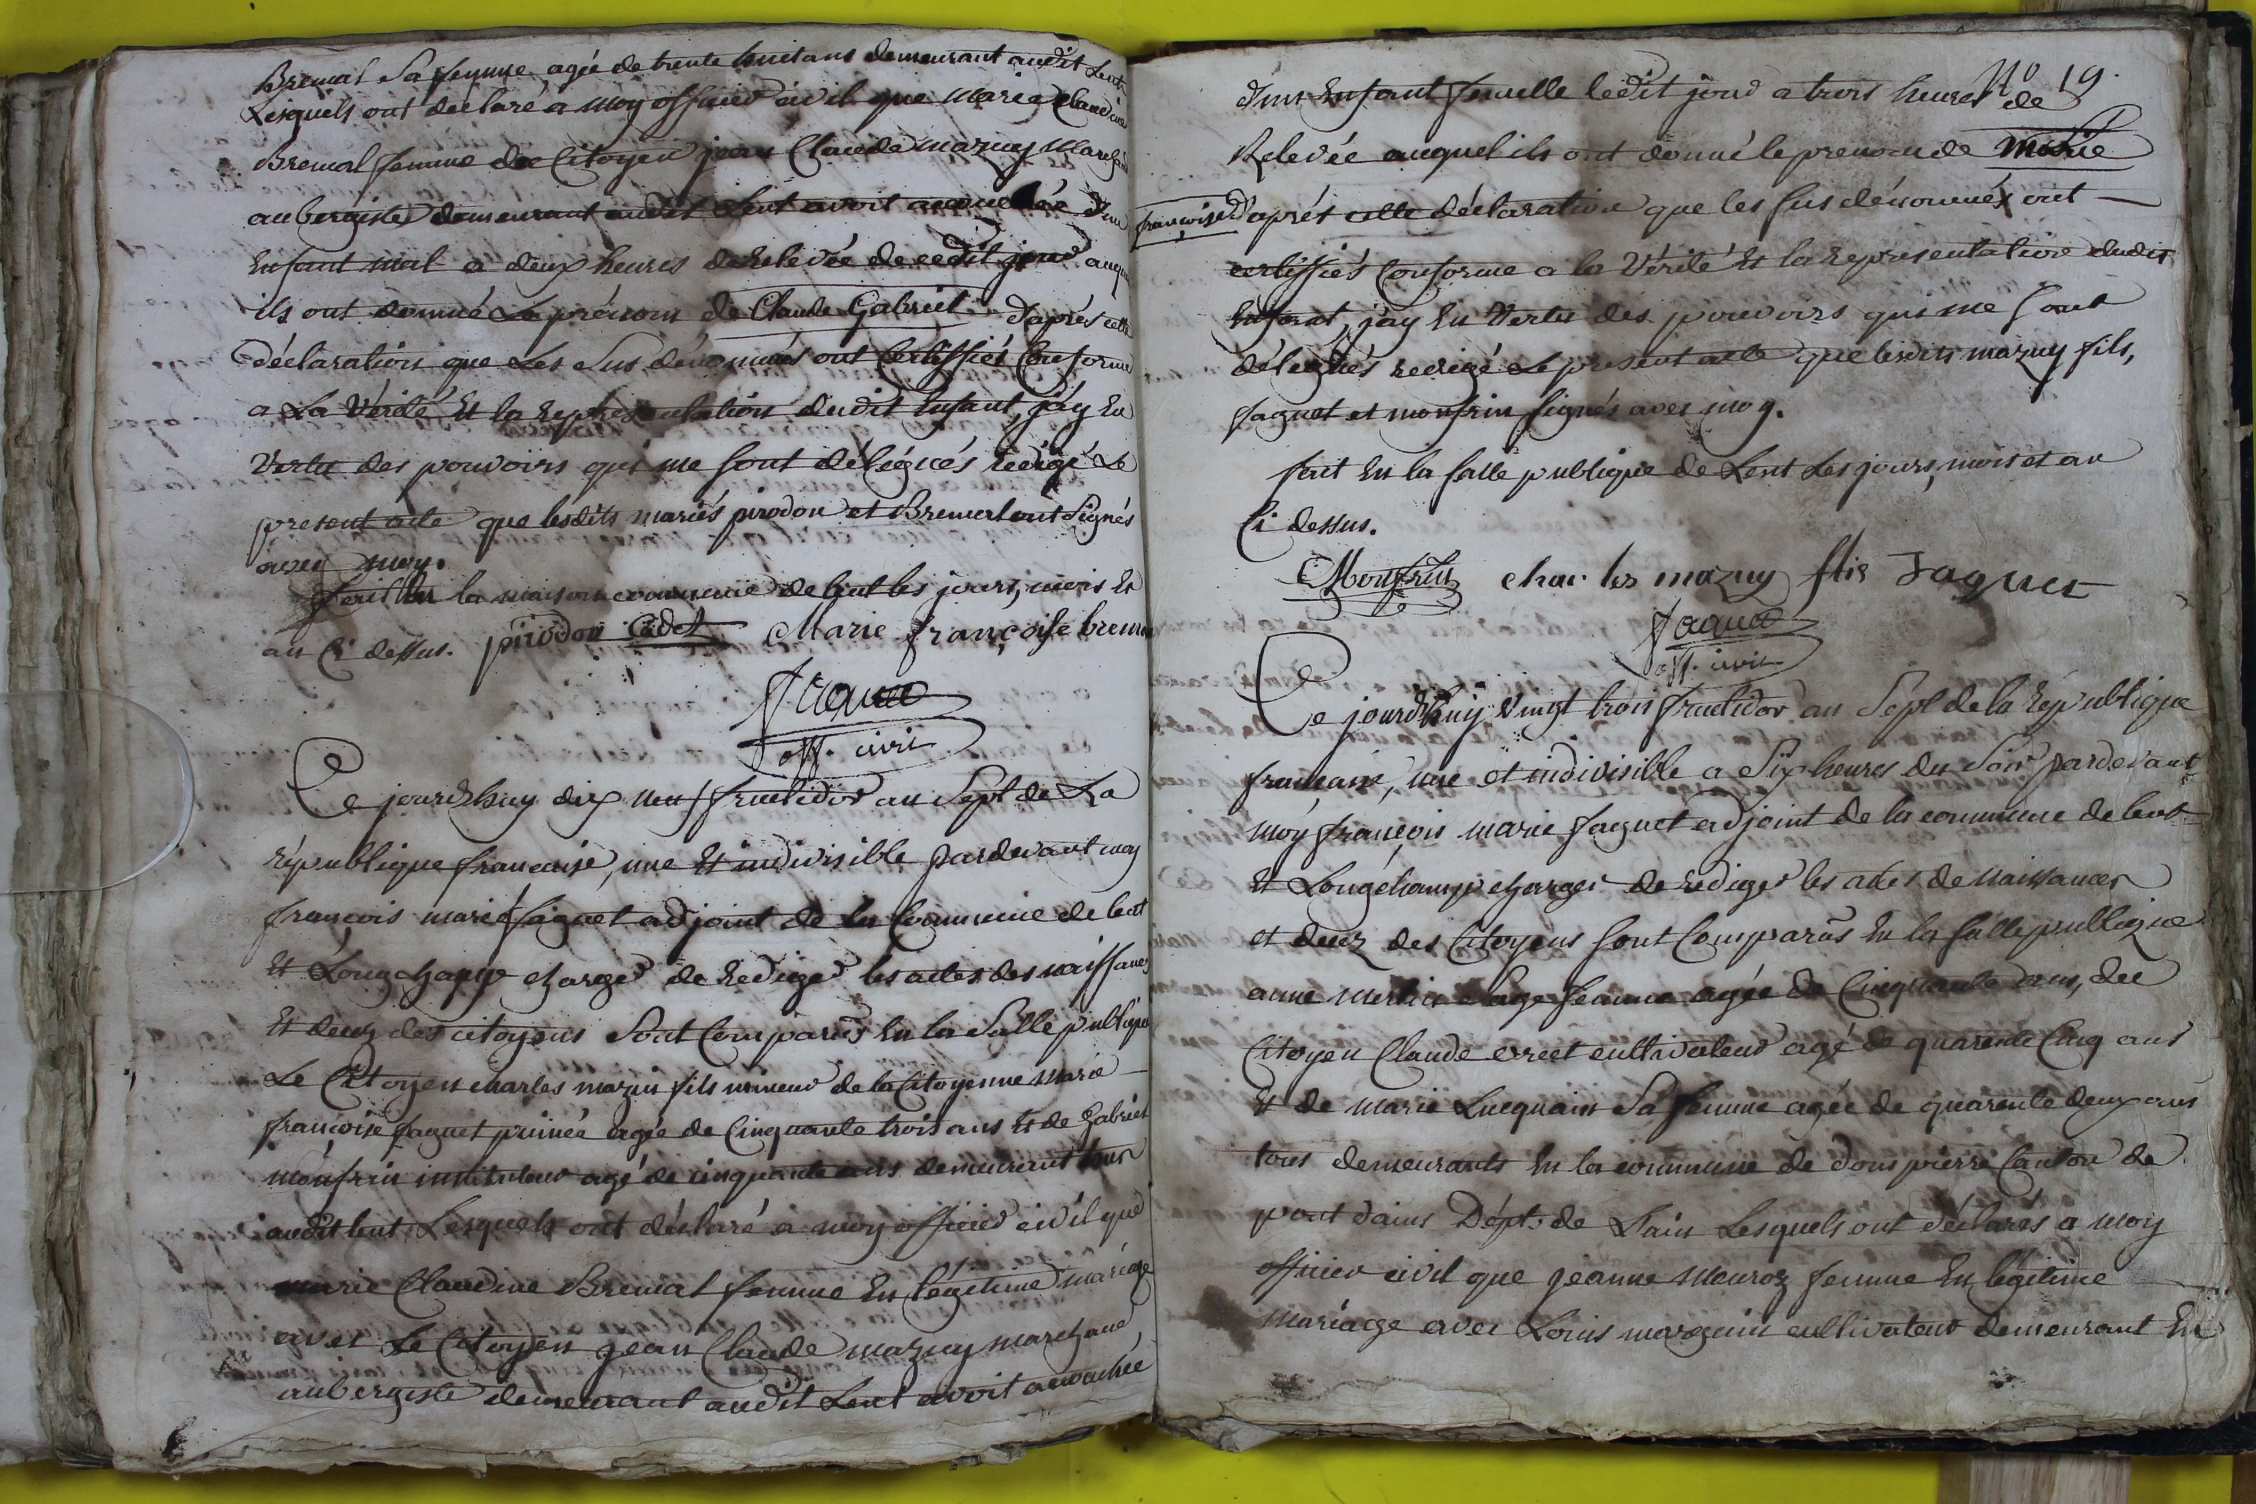 Bremal Sa femme agée de trente huit ans demeurant audit Lent
Lesquels ont declaré a moy officier civil que Marie Claudine
Bremal femme du Citoyen jean Claude mazuy Marchand
aubergiste demeurant audit Lent avoit accouchée d'un
Enfant mal a deux heures de Relevée de cedit jour auquel
ils ont donné Le prénom de Claude Gabriel. d'aprés cette
déclaration que Les Sus dénommés ont Certiffiés Conforme
a La Vérité Et la Représentation dudit Enfant, j'ay En
Vertu des pouvoirs qui me sont délégués redigé Le
present acte que lesdits mariés pirodon et Bremal ont Signés
avec moy.
fait En la maison commune de lent les jours, mois Et
an Ci dessus. pirodon Cadet Marie françoise bremal
faguet
off. civil
Ce jourd'huy dix neuf fructidor an Sept de La
république francaise, une Et indivisible pardevant moy
françois marie faguet adjoint de la Commune de lent
Et Longchamp chargé de Rediger les actes des naissances
Et decez des citoyens Sont Comparus En la Salle publique
Le Citoyen charles mazuy fils mineur de la Citoyenne Marie
françoise faguet puinée agée de Cinquante trois ans Et de Gabriel
monfrin instituteur agé de cinquante ans demeurant tous
audit lent Lesquels ont déclaré a moy officier civil que
marie Claudine Bremal femme En légitime mariage
avec Le Citoyen jean Claude mazuy marchand
aubergiste demeurant audit Lent avoit accouchée
No 19.
d'un Enfant femelle ledit jour a trois heures de
Relevée auquel ils ont donné le prenom de Marie
françoise d'aprés cette déclaration que les sus dénommés ont
certiffiés Conforme a la Vérité Et la representation dudit
Enfant, j'ay En Vertu des pouvoirs qui me sont
délégués redigé Le present acte que lesdits mazuy fils,
faguet et monfrin signés avec moy.
fait En la salle publique de Lent Les jours, mois et an
Ci dessus.
Monfrin char les mazuy flis Jaguet
faguet
off. civil
Ce jourd'huy vingt trois fructidor an Sept de la République
francaise, une et indivisible a Six heures du Soir pardevant
moy françois marie faguet adjoint de la commune de lent
Et Longchamp charger de rediger les actes de naissances
et decez des Citoyens sont Comparus En la salle publique
anne Merlin Sage femme agée de Cinquante ans, du
Citoyen Claude cultivateur agé de quarente Cinq ans
Et de Marie Lucquain Sa femme agée de quarente deux ans
tous demeurants En la commune de dompierre Canton de
pont dains Dépt. de L'ain Lesquels ont déclarés a moy
officier civil que jeanne Meuroz femme En légitime
mariage avec Louis mazguin cultivateur demeurant En